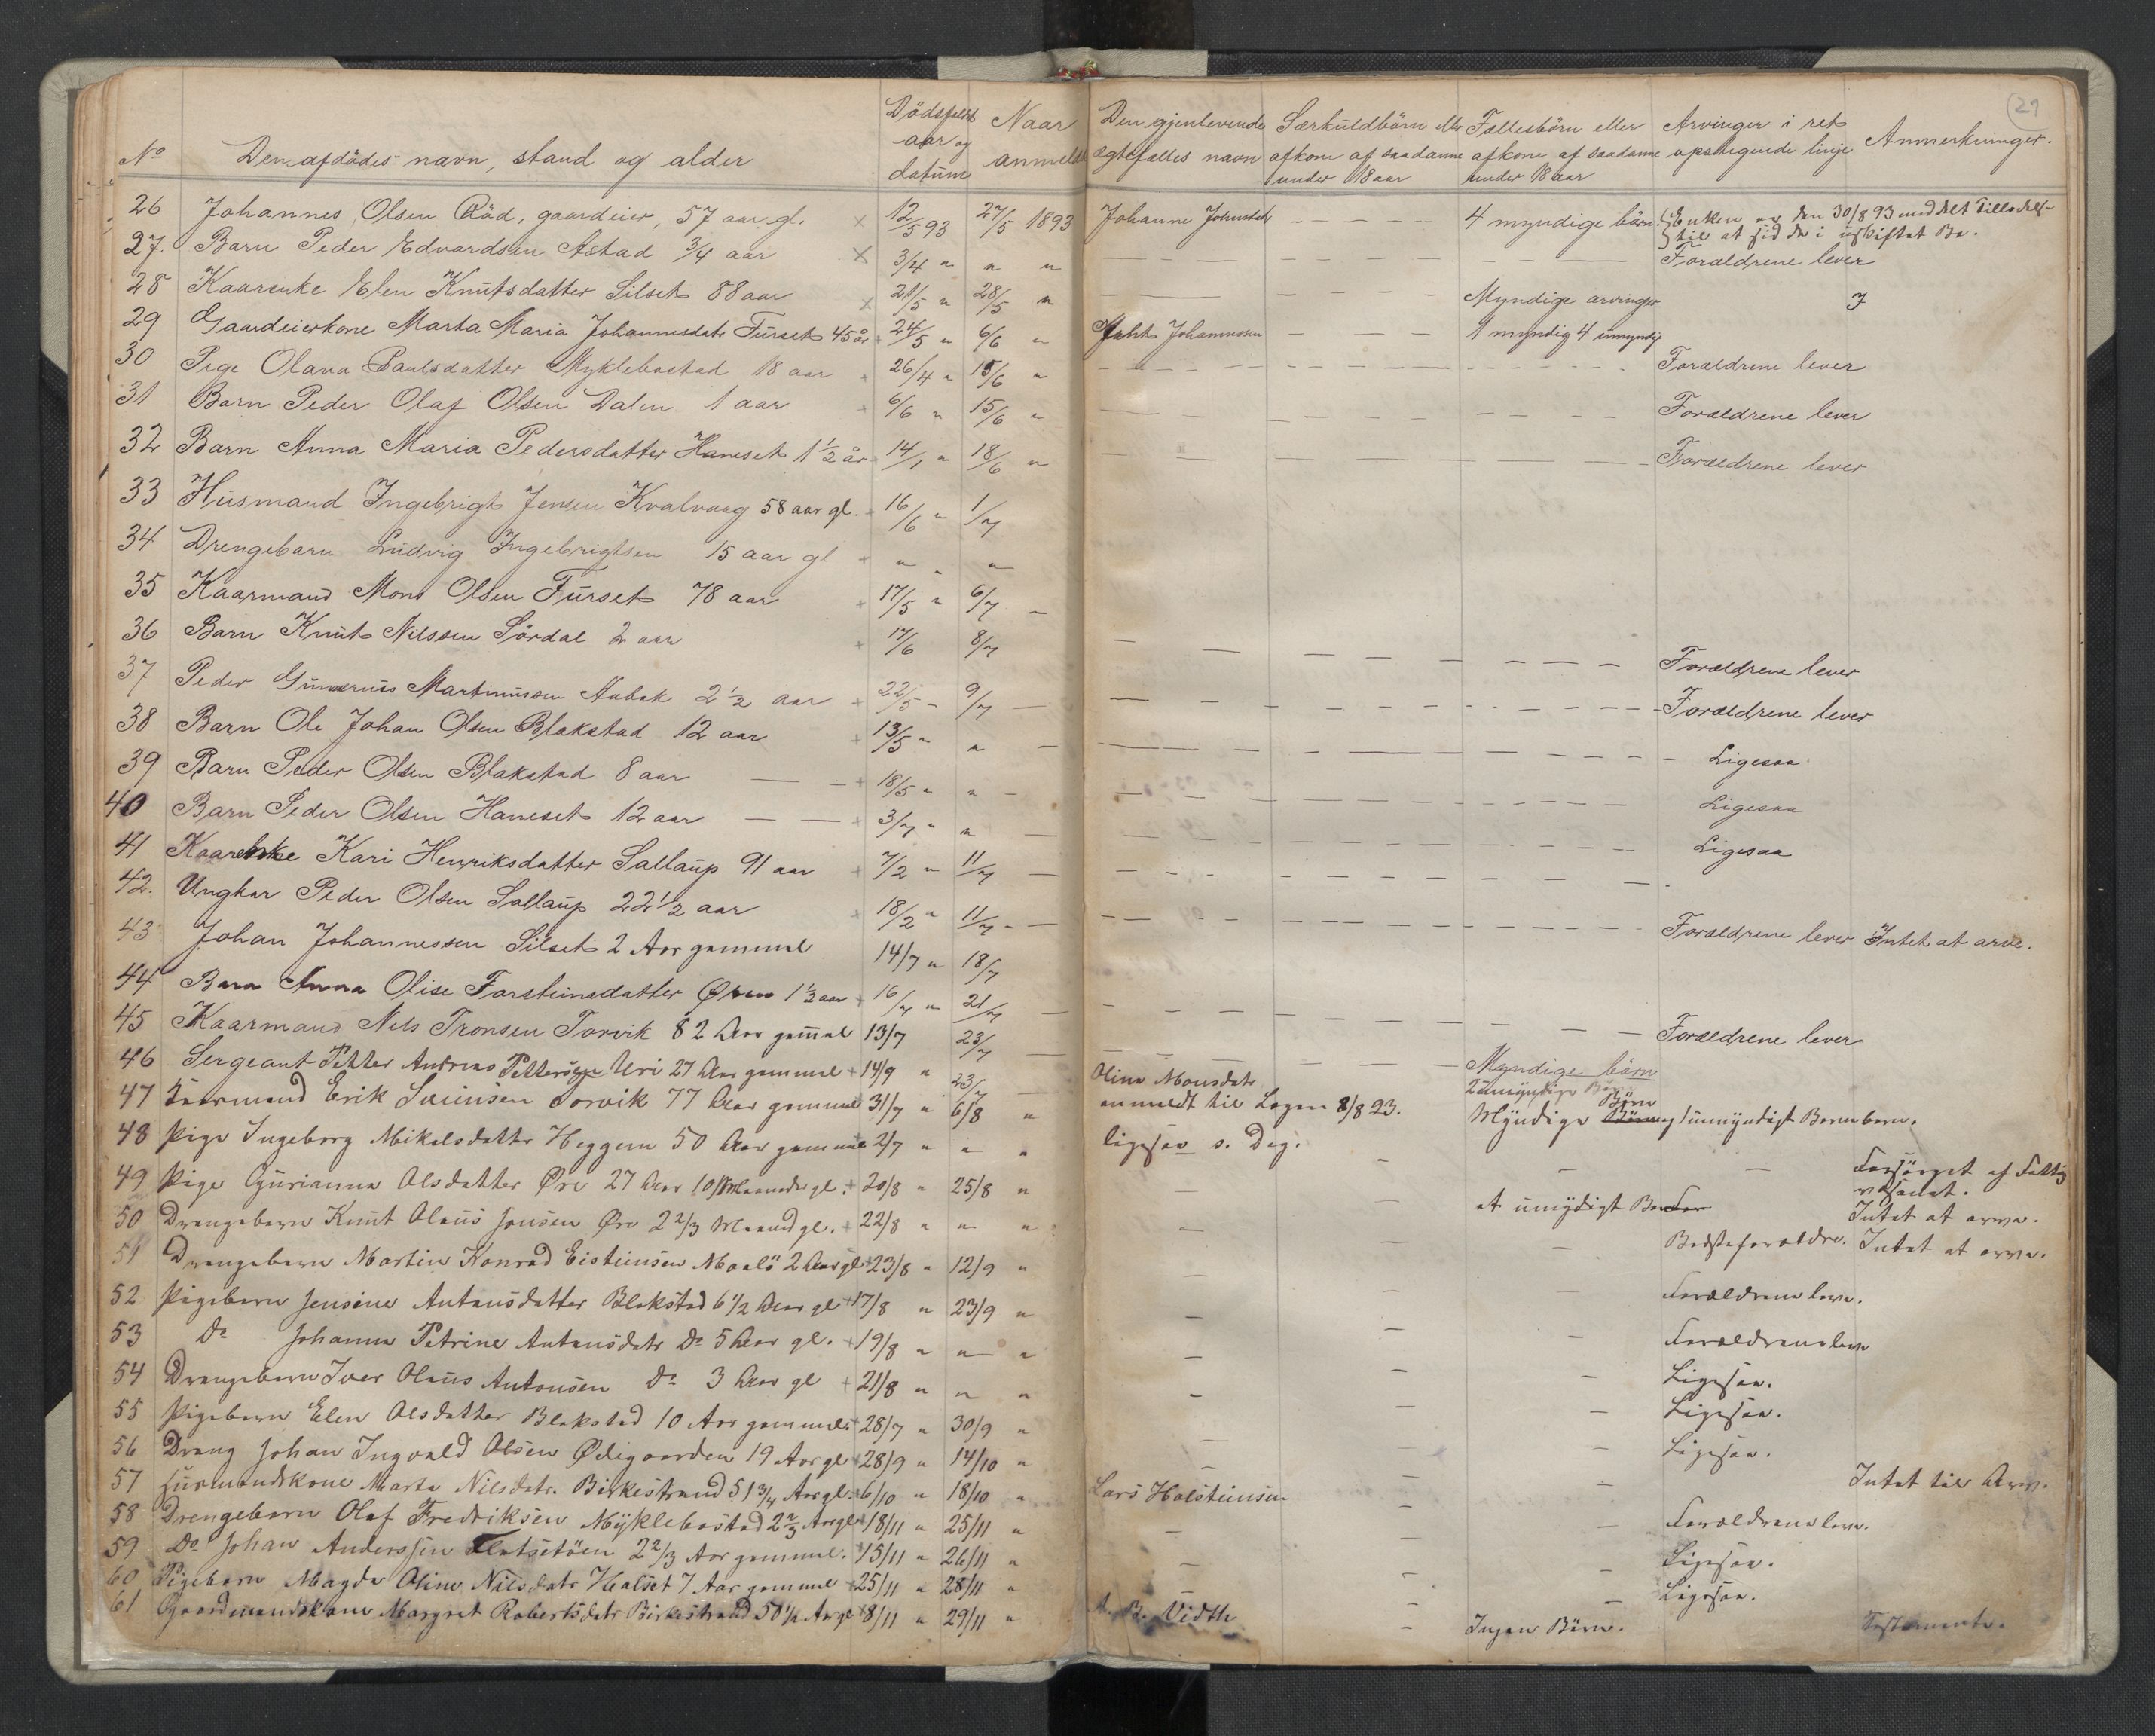 29
No Den afdødes navn, stand og alder Dödsfalds aar og datum Naar anmeldt Den gjenlevende ægtefælles navn Særkuldbörn eller afkom af saadanne under 18 aar Fællesbörn eller afkom af saadanne under 18 aar Arvinger i ret opstigende linje Anmerkninger.
26 Johannes Olsen Röd, gaardeier, 57 aar gl. × 12/5 93 27/5 1893 Johanne 4 myndige börn. Enken er den 30/8 93 meddelt Tilladelse til at sidde i uskiftet Bo.
27. Barn Peder Edvardsen Astad 3/4 aar × 3/4 " " " Foraeldrene lever
28 Kaarenke Elen Knutsdatter Silset 88 aar × 21/5 " 28/5 " Myndige arvinger
29 Gaardeierkone Marta Maria Johannesdatr Furset 45 år 24/5 " 6/6 " Johannessen 1 myndig 4 umyndige
30 Pige Olava Paulsdatter Myklebostad 18 aar 26/4 " 15/6 " Foraeldrene lever
31 Barn Peder Olaf Olsen Dalen 1 aar 6/6 " 15/6 " Foraeldrene lever
32 Barn Anna Maria Pedersdatter Haneset 1 1/2 år 14/1 " 18/6 " Foraeldrene lever
33 Husmand Ingebrigt Jensen Kvalvaag 58 aar gl. 16/6 " 1/7
34 Drengebarn Ludvig Ingebrigtsen 15 aar gl + " "
35 Kaarmand Mons Olsen Furset 78 aar + 17/5 " 6/7
36 Barn Knut Nilssen Sördal 2 aar + 17/6 8/7 Foraeldrene lever
37 Peder Martinussen 2 1/2 aar + 22/5 " 9/7 Foraeldrene lever
38 Barn Ole Johan Olsen Blakstad 12 aar + 13/5 " " Ligesaa
39 Barn Peder Olsen Blakstad 8 aar + 18/5 " " Ligesaa
40 Barn Peder Olsen Haneset 12 aar + 3/7 " " Ligesaa
41 Kaarenke Kari Henriksdatter Sallaup 91 aar + 7/2 " 11/7
42. Ungkar Peder Olsen Sallaup 22 1/2 aar + 18/2 " 11/7 Foraeldrene lever Intet at arve.
43 Johan Johannessen Silset 2 Aar gammel 14/7 " 18/7
44 Barn Anna Olise Torsteinsdatter 1 1/2 aar + 16/7 " 21/7 Foraeldrene lever
45 Kaarmand Nils Tronsen Torvik 82 Aar gammel 13/7 23/7 Myndige börn
46 Sergeant Petter Andreas Pettersen Uri 27 Aar gammel + 14/9 " 23/7 Oline Monsdatr 2 umyndige Börn
47 Kaarmand Erik Torvik 77 Aar gammel 31/7 " 6/8 " anmeldt til Lagen 8/8 93. Myndige Börn og 1 umyndigt Barnebarn.
48 Pige Ingeborg Mikalsdatter Heggem 50 Aar gammel 2/7 " " " ligesaa s. Dag. Forsörget af Fattigvæsenet.
49 Pige Gurianna Olsdatter Öre 27 Aar 10 Maaneder gl. + 20/8 " 25/8 " et umyndigt Barn Intet at arve.
50 Drengebarn Knut Olaus Jonsen Öre 2 2/3 Maaned gl. + 22/8 " " " Bedsteforældre. Intet at arve.
51 Drengebarn Martin Konrad Eisteinsen 2 Aar gl + 23/8 " 12/9 " Forældrene leve.
52 Pigebarn Jensine Antonsdatter Blakstad 6 1/2 Aar gl + 17/8 " 23/9 " Forældrene leve
53 Do Johanna Petrine Antonsdatr Do 5 Aar gl. + 19/8 " " " Ligesaa.
54 Drengebarn Iver Olaus Antonsen Do 3 Aar gl + 21/8 " " " Ligesaa.
55 Pigebarn Elen Olsdatter Blakstad 10 Aar gammel + 28/7 " 30/9 " Ligesaa.
56 Dreng Johan Ingvald Olsen Ödegaarden 19 Aar gl + 28/9 " 14/10 "
57 Husmandskone Marta Nilsdatr. Birkestrand 51 3/4 Aar gl. + 6/10 " 18/10 " Lars Halsteinsen Intet til Arv.
58 Drengebarn Olaf Fredriksen Myklebostad 2 2/3 Aar gl + 18/11 " 25/11 " Forældrene leve.
59 Do Johan Anderssen 2 2/3 Aar gammel. + 15/11 " 26/11 " Ligesaa.
60 Pigebarn Magda Oline Nilsdatr Halset 7 Aar gammel + 25/11 " 28/11 " Ligesaa.
61 Gaardmandskone Margret Robertsdatr Birkestrand 50 1/2 Aar gl + 8/11 " 29/11 " Ingen Börn. Testamente.